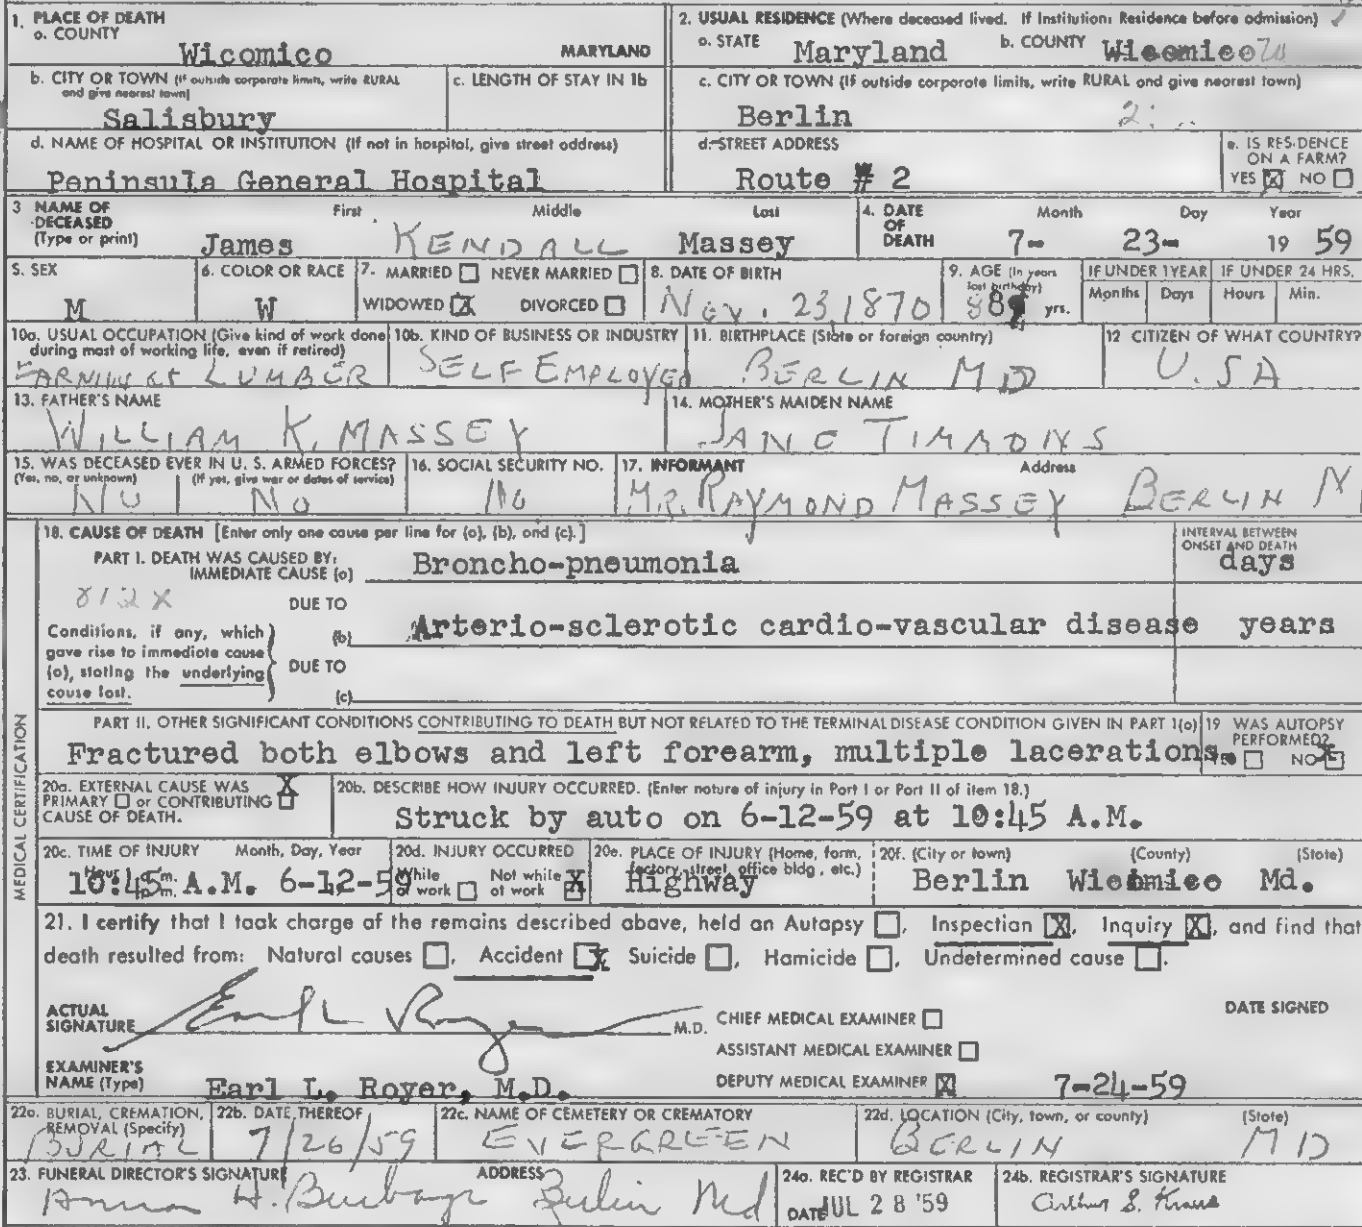 1. PLACE OF DEATH
a. COUNTY
Wicomico MARYLAND
2. USUAL RESIDENCE (Where deceased lived. If Institution: Residence before admission)
a. STATE Maryland b. COUNTY Wicomico
b. CITY OR TOWN (If outside corporate limits, write RURAL and give nearest town)
Salisbury
c. LENGTH OF STAY IN 1b
c. CITY OR TOWN (If outside corporate limits, write RURAL and give nearest town)
Berlin
d. NAME OF HOSPITAL OR INSTITUTION (If not in hospital, give street address)
Peninsula General Hospital
d. STREET ADDRESS
Route # 2
e. IS RESIDENCE ON A FARM?
YES X NO
3 NAME OF DECEASED (Type or print)
First Middle Last
James KENDALL Massey
4. DATE OF DEATH
Month Day Year
7- 23- 19 59
5. SEX
M
6. COLOR OR RACE
W
7. MARRIED NEVER MARRIED
WIDOWED X DIVORCED
8. DATE OF BIRTH
Nov. 23, 1870
9. AGE (In years last birthday)
88 yrs.
IF UNDER 1 YEAR
Months Days
IF UNDER 24 HRS.
Hours Min.
10a. USUAL OCCUPATION (Give kind of work done during most of working life, even if retired)
LUMBER
10b. KIND OF BUSINESS OR INDUSTRY
SELF EMPLOYED
11. BIRTHPLACE (State or foreign country)
BERLIN MD
12 CITIZEN OF WHAT COUNTRY?
U.SA
13. FATHER'S NAME
WILLIAM K. MASSEY
14. MOTHER'S MAIDEN NAME
JANE TIMMONS
15. WAS DECEASED EVER IN U. S. ARMED FORCES?
(Yes, no, or unknown) (If yes, give war or dates of service)
NO NO
16. SOCIAL SECURITY NO.
No
17. INFORMANT Address
MR. RAYMOND MASSEY BERLIN M
18. CAUSE OF DEATH [Enter only one cause per line for (a), (b), and (c).]
INTERVAL BETWEEN ONSET AND DEATH
PART I. DEATH WAS CAUSED BY:
IMMEDIATE CAUSE (a) Broncho-pneumonia days
812X DUE TO
Conditions, if any, which gave rise to immediate cause (a), stating the underlying cause last.
(b) Arterio-sclerotic cardio-vascular disease years
DUE TO
(c)
MEDICAL CERTIFICATION
PART II. OTHER SIGNIFICANT CONDITIONS CONTRIBUTING TO DEATH BUT NOT RELATED TO THE TERMINAL DISEASE CONDITION GIVEN IN PART I(a)
Fractured both elbows and left forearm, multiple lacerations.
19 WAS AUTOPSY PERFORMED?
YES NO X
20a. EXTERNAL CAUSE WAS
PRIMARY or CONTRIBUTING X
CAUSE OF DEATH.
20b. DESCRIBE HOW INJURY OCCURRED. (Enter nature of injury in Part I or Part II of item 18.)
Struck by auto on 6-12-59 at 10:45 A.M.
20c. TIME OF INJURY Month, Day, Year
Hour a.m. p.m.
10:45 A.M. 6-12-59
20d. INJURY OCCURRED
While at work Not while at work X
20e. PLACE OF INJURY (Home, farm, factory, street, office bldg., etc.)
Highway
20f. (City or town) (County) (State)
Berlin Wicomico Md.
21. I certify that I took charge of the remains described above, held an Autopsy , Inspection X, Inquiry X, and find that
death resulted from: Natural causes , Accident X Suicide , Homicide , Undetermined cause .
ACTUAL SIGNATURE Earl L Royer M.D.
CHIEF MEDICAL EXAMINER
DATE SIGNED
ASSISTANT MEDICAL EXAMINER
EXAMINER'S NAME (Type) Earl L. Royer, M.D.
DEPUTY MEDICAL EXAMINER X 7-24-59
22a. BURIAL, CREMATION, REMOVAL (Specify)
BURIAL
22b. DATE THEREOF
7/26/59
22c. NAME OF CEMETERY OR CREMATORY
EVERGREEN
22d. LOCATION (City, town, or county) (State)
BERLIN MD
23. FUNERAL DIRECTOR'S SIGNATURE ADDRESS
Anna H. Burbage Berlin Md
24a. REC'D BY REGISTRAR
DATE JUL 28 '59
24b. REGISTRAR'S SIGNATURE
Arthur S. Kraus